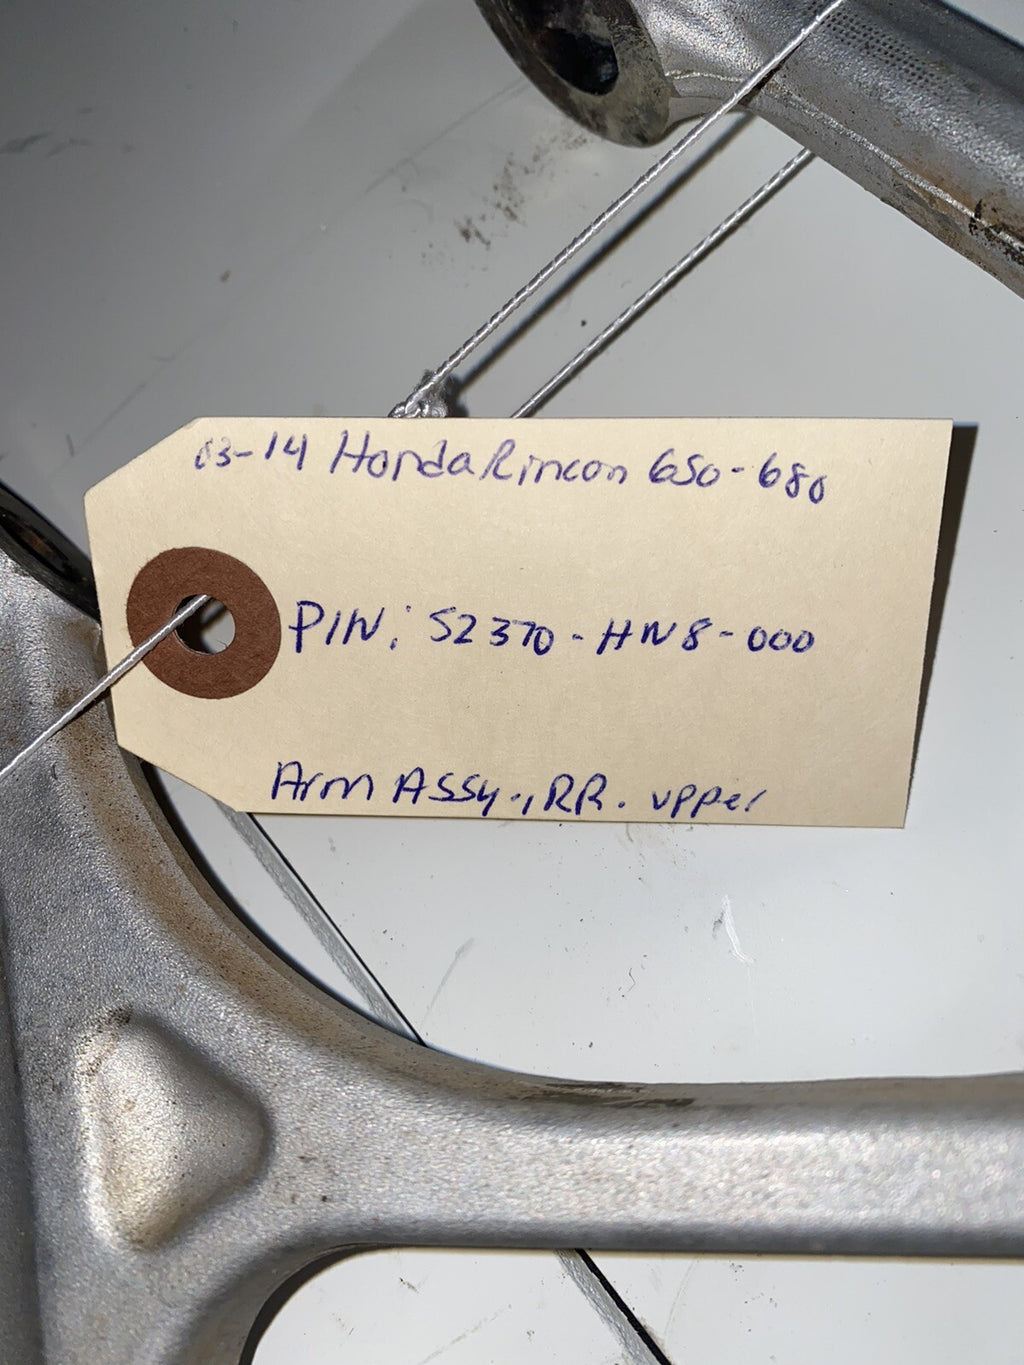 03-14 Honda Rincon 650-680
P/N: 52370-HN8-000
Arm Assy., RR. upper